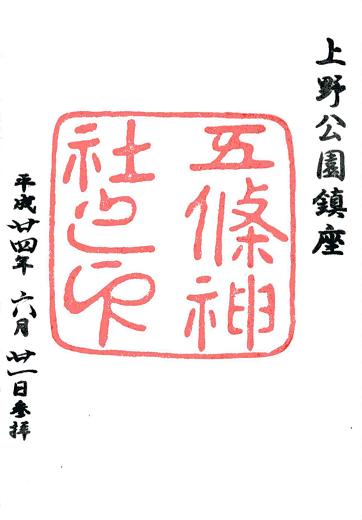 上野公園鎮座
五條神
社之印
平成廿四年 六月 廿一日参拝